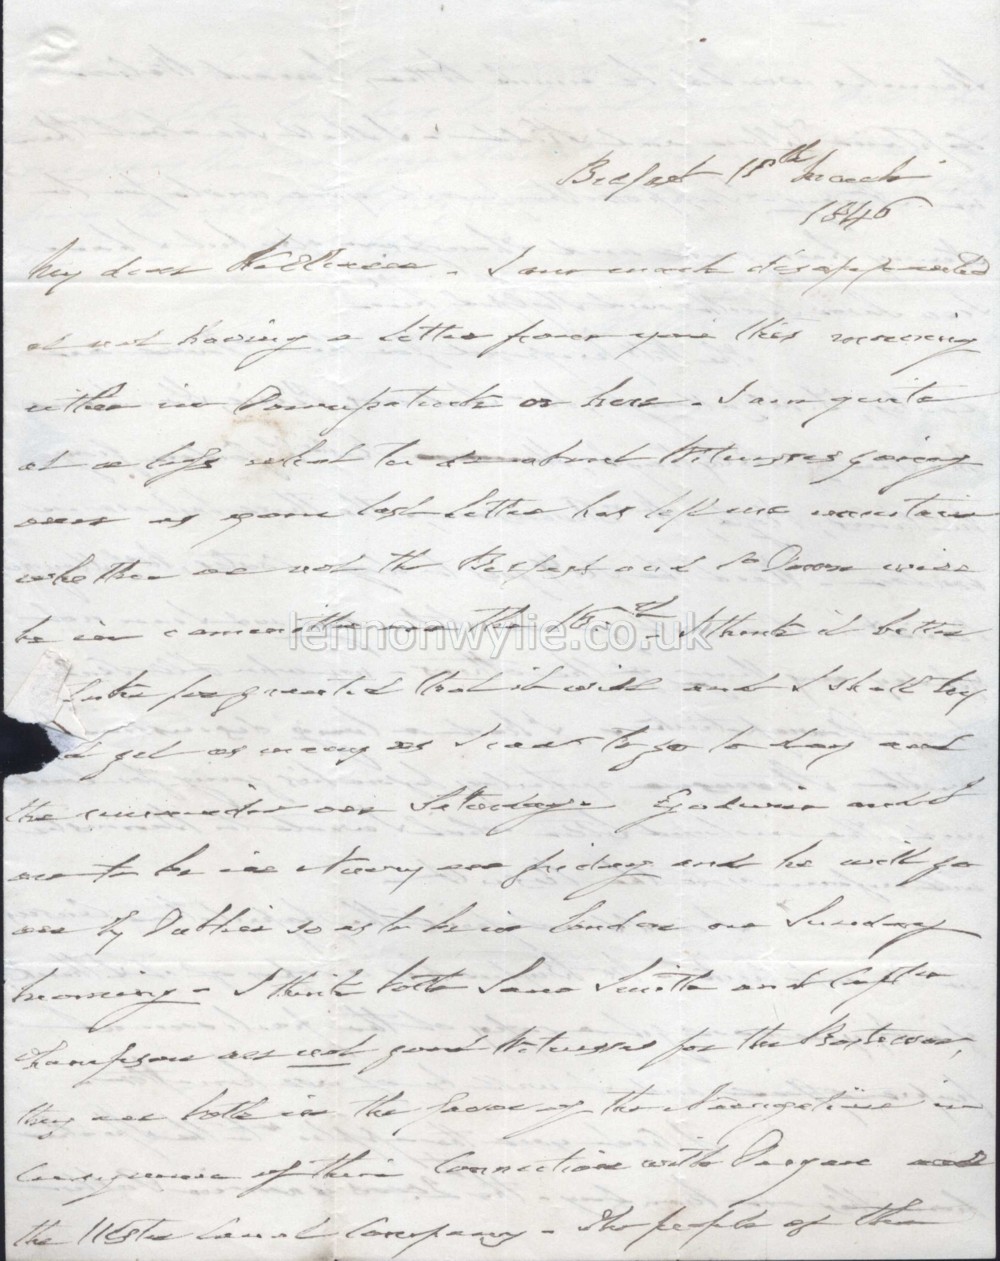 Belfast 18th March
1846
My dear I am much disappointed
at not having a letter from you this morning
either in Downpatrick or here. I am quite
at a loss what to do about Witnesses going
over as your last letter has left me uncertain
whether or not the Belfast and Co Down will
be in committee on the I think it better
take for granted that it will and I shall try
get as many as I can to go to day and
the remainder on Saturday. Godwin and I
are to be in Newry on friday and he will go
on by Dublin so as to be in London on Sunday
morning. I think both Smith and
Thompson are not good Witnesses for the
they are both in the favor of the Navigation in
consequence of their Connection with and
the Ulster Canal Company. The people of the
lennonwylie.co.uk